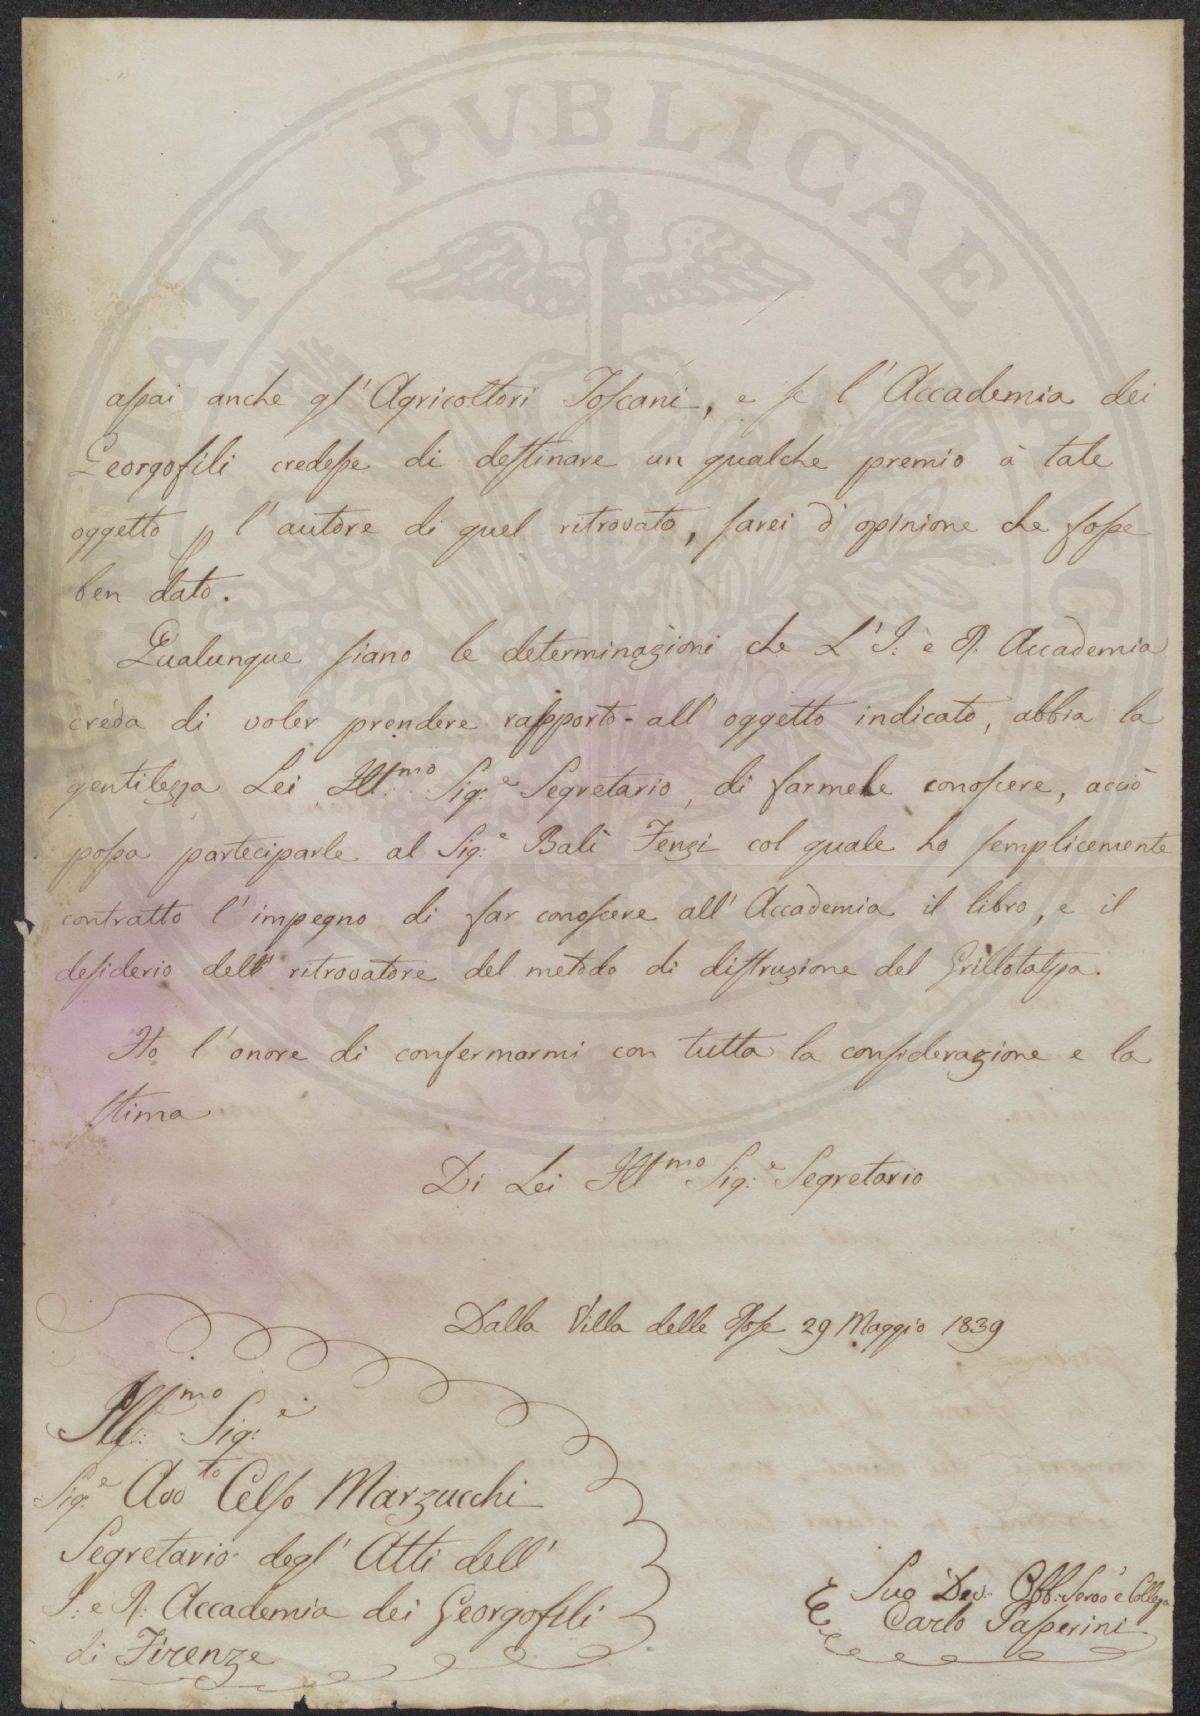 PROSPERITATI PVBLICAE AVGENDAE
assai anche gl' Agricoltori Toscani, e se l' Accademia dei
Georgofili credesse di destinare un qualche premio à tale
oggetto p l' autore di quel ritrovato, sarei d' opinione che fosse
ben dato.
Qualunque siano le determinazioni che L' I: e R. Accademia
creda di voler prendere rapporto all' oggetto indicato, abbia la
gentilezza Lei Ill:mo Sig:e Segretario, di farmele conoscere, acciò
possa parteciparle al Sig:e Balì Fenzi col quale ho semplicemente
contratto l' impegno di far conoscere all' Accademia il libro, e il
desiderio dell ritrovatore del metodo di distruzione del Grillotalpa.
Ho l' onore di confermarmi con tutta la considerazione e la
stima
Di Lei Ill:mo Sig:e Segretario
Dalla Villa delle Rose 29 Maggio 1839
Ill:mo Sig:e
Sig:e Avvto Celso Marzucchi
Segretario degl' Atti dell'
I: e R: Accademia dei Georgofili
di Firenze
Suo Dev: Obb: Servo e Collega
Carlo Passerini